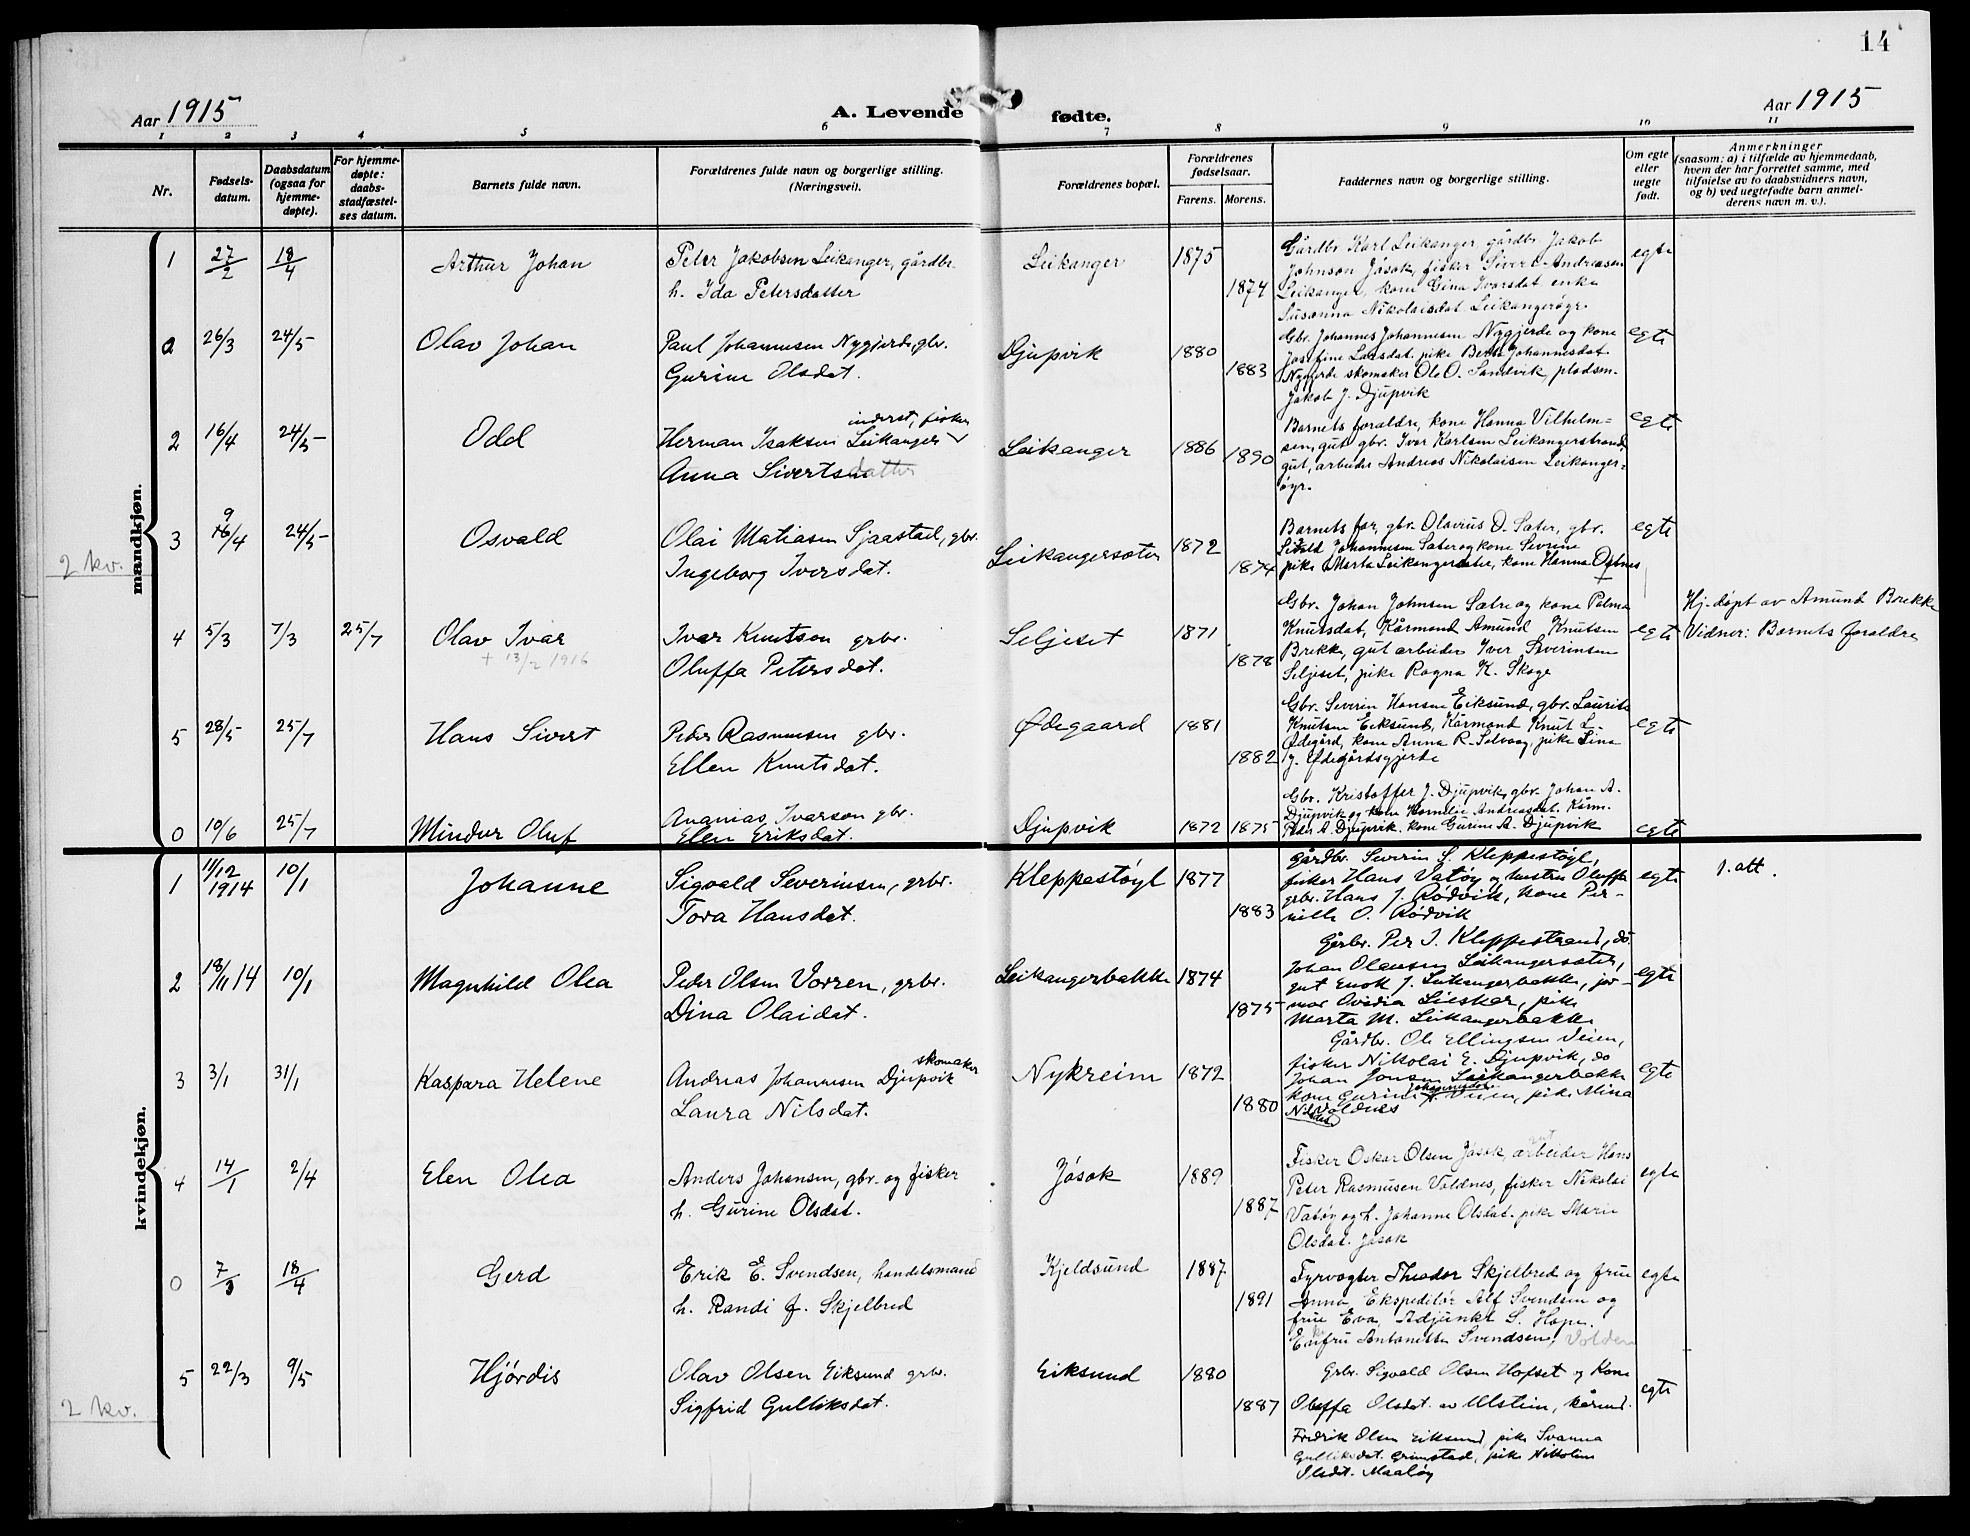 14
Aar 1915
A. Levende fødte.
Aar 1915
1 2 3 4 5 6 7 8 9 10 11
Nr.
Fødsels-datum.
Daabsdatum (ogsaa for hjemme-døpte).
For hjemme-døpte: daabs-stadfæstel-ses datum.
Barnets fulde navn.
Forældrenes fulde navn og borgerlige stilling. (Næringsvei).
Forældrenes bopæl.
Forældrenes fødselsaar.
Farens. Morens.
Faddernes navn og borgerlige stilling.
Om egte eller uegte født.
Anmerkninger
(saasom: a) i tilfælde av hjemmedaab,
hvem der har forrettet samme, med
tilføielse av to daabsvidners navn,
og b) ved uegtefødte barn anmel-
derens navn m. v.).
mandkjøn.
1 27/2 18/4 Arthur Johan Peter Jakobsen Leikanger, gårdbr. Leikanger 1875 egte
h. Ida Petersdatter 1874
Gårdbr Karl Leikanger, gårdbr Jakob
Johnson Jøsok, fisker Sivert Andreassen
Leikanger, kone Gina Ivarsdat enke
Susanna Nikolaisdat Leikangerøyr.
0 26/3 24/5 Olav Johan Paul Johannesen Nygjerde, gbr. Djupvik 1880 egte
Gurine Olsdat. 1883
Gbr. Johannes Johannesen Nygjerde og kone
Josefine Larsdat. pike Berte Johannesdat.
Nygjerde skomaker Ole O. Sandvik, pladsm.
Jakob J. Djupvik
2 16/4 24/5 Odd Herman Isaksen Leikanger inderst, fisker Leikanger 1886 egte
Anna Sivertsdatter 1890
Barnets foraldre, kone Hanna Vilhelm=
sen, gut gbr. Ivar Karlsen Leikangerstrand,
gut, arbeider Andreas Nikolaisen Leikanger=
øyr.
3 9/4 24/5 Osvald Olai Matiasen Sjaastad, gbr. Leikangersæter 1872 egte
2 kv.
Ingeborg Iversdat. 1874
Barnets far, gbr. Olavius O. Sæter, gbr.
Johannesen Sæter og kone Sevrine
pike Marta Leikangersæter, kone Hanna
4 5/3 7/3 25/7 Olav Ivar Ivar Knutsen grbr. Seljeset 1871 egte
+ 13/2 1916
Oluffa Petersdat. 1878
Gbr. Johan Johnsen Sætre og kone Palma
Knutsdat, Kårmand Amund Knutsen
Brekke, gut arbeider Iver Severinsen
Seljeset, pike Ragna K. Skoge
Hj. døpt av Amund Brekke
Vidner: Barnets foraldre
5 28/5 25/7 Hans Sivert Peder Rasmussen gbr. Ødegaard 1881 egte
Ellen Knutsdat. 1882
Gbr. Severin Hansen Eiksund, gbr. Laurits
Knutsen Eiksund, Kårmand Knut L.
Ødegård, kone Anna R. Solvaag, pike Lina
J. Ødegårdsgjerde
0 10/6 25/7 Mindor Oluf Ananias Ivarson gbr. Djupvik 1872 1875 egte
Elen Eriksdat.
Gbr. Kristoffer J. Djupvik, gbr. Johan A.
Djupvik og kone Kornelia Andreasdat. Kårm.
Peder A. Djupvik. kone Gurine A. Djupvik
kvindekjøn.
1 11/12 1914 10/1 Johanne Sigvald Severinsen, grbr. Kleppestøyl 1877 egte 1. att.
Tora Hansdat. 1883
Gårdbr. Severin S. Kleppestøyl,
fisker Hans Vatøy og hustru Oluffa
grbr. Hans J. Rødvik, kone Per-
nille O. Rødvik
2 18/11 14 10/1 Magnhild Olea Peder Olsen Vorren, grbr. Leikangerbakke 1874 egte
Dina Olaidat. 1875
Gårbr. Per I. Kleppestrand, do.
Johan Olausen Leikangersæter,
gut Enok J. Leikangerbakke, jor-
mor Ovidia Lieskar, pike
Marta M. Leikangerbakke
3 3/1 31/1 Kaspara Helene Andreas Johannesen Djupvik skomaker Nykreim 1872 egte
Laura Nilsdat. 1880
Gårdbr. Ole Ellingsen Veien,
fisker Nikolai E. Djupvik, do
Johan Jonsen Leikangerbakke
kone Gurine J. Veien, pike Mina
Voldnes
4 14/1 2/4 Elen Olea Anders Johansen, gbr. og fisker Jøsok 1889 egte
h. Gurine Olsdat. 1887
Fisker Oskar Olsen Jøsok, arbeider Hans
Peter Rasmusen Voldnes, fisker Nikolai
Vatøy og h. Johanne Olsdat. pike Marie
Olsdat. Jøsok
0 7/3 18/4 Gerd Erik E. Svendsen, handelsmand Kjeldsund 1887 egte
h. Randi f. Skjelbred 1891
Fyrvogter Theodor Skjelbred og frue
Anna, Ekspeditør Alf Svendsen og
frue Eva, Adjunkt S. Hope.
Enkefru Antonette Svendsen, Volden
5 22/3 9/5 Hjördis Olav Olsen Eiksund grbr. Eiksund 1880 egte
2 kv.
Sigfrid Gulliksdat. 1887
Grbr. Sigvald Olsen Hofset og Kone
Oluffa Olsdat. av Ulstein, kårmd.
Fredrik Olsen Eiksund, pike Svanna
Gulliksdat. Grimstad, pike Nikoline
Olsdt. Maaløy